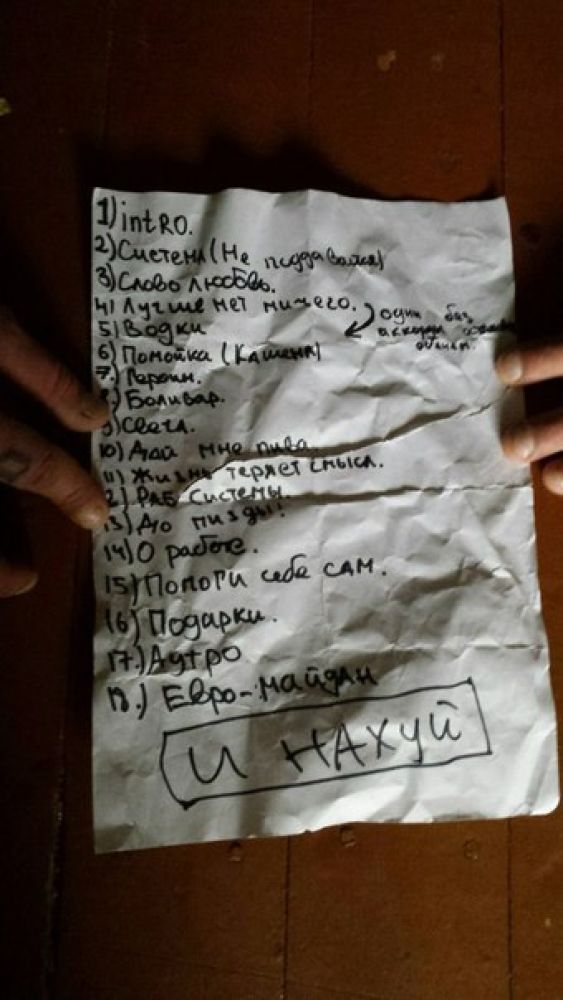 1) intRO.
2) Система (Не поддавайся)
3) Слово любовь.
4) Лучше нет ничего.
один без
5) Водки
6) Помойка (Кашена)
7.) Героин.
8) Боливар.
9) Света.
10) Дай мне пива.
11) Жизнь теряет смысл.
12) РАБ Системы.
13) До пизды!
14) О работе.
15) Помоги себе САМ.
16) Подарки.
17.) Аутро
18.) Евро-майдан
И НАХУЙ